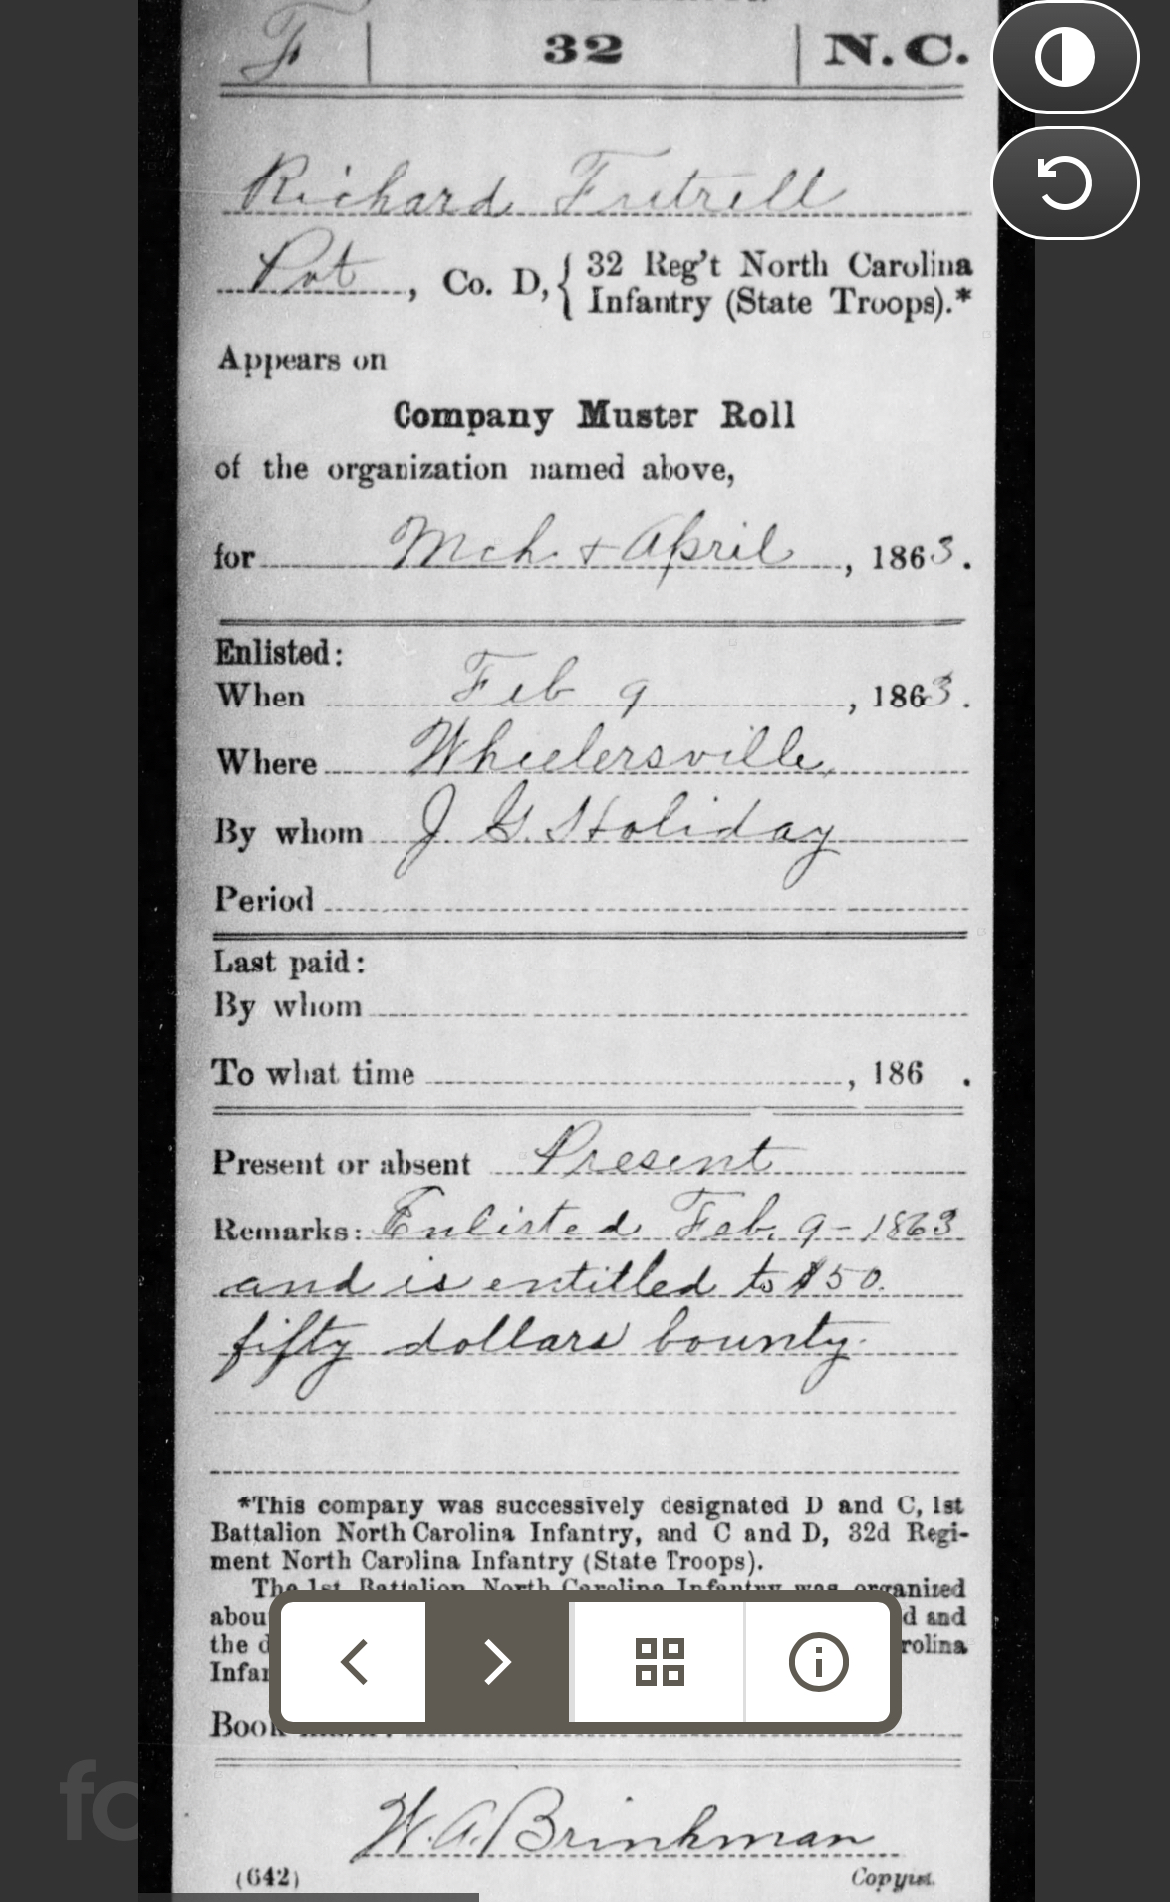 F 32 N.C.
Richard Futrell
Pvt, Co. D, { 32 Reg't North Carolina
Infantry (State Troops).*
Appears on
Company Muster Roll
of the organization named above,
for Mch. & April, 1863.
Enlisted:
When Feb 9, 1863.
Where Wheelersville,
By whom J. G. Holiday
Period
Last paid:
By whom
To what time , 186 .
Present or absent Present
Remarks: Enlisted Feb. 9 - 1863
and is entitled to $50.
fifty dollars bounty.
*This company was successively designated D and C, 1st
Battalion North Carolina Infantry, and C and D, 32d Regi-
ment North Carolina Infantry (State Troops).
The 1st Battalion North Carolina Infantry was organized
abou d and
the d rolina
Infan
Book mark:
W. A. Brinkman
(642) Copyist.
fo